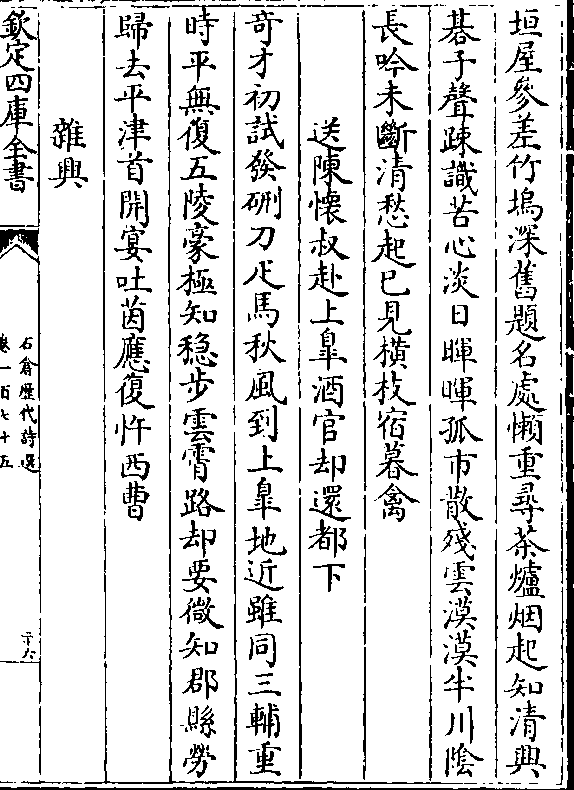 垣屋參差竹塢深舊題名處懶重尋茶爐烟起知清興
棊子聲踈識苦心淡日暉暉孤市散殘雲漠漠半川陰
長吟未斷清愁起已見橫枝宿暮禽
送陳懷叔赴上臯酒官却還都下
奇才初試發硎刀疋馬秋風到上臯地近雖同三輔重
時平無復五陵豪極知穏步雲霄路却要微知郡縣勞
歸去平津首開宴吐茵應復忤西曹
雜興
欽定四庫全書
石倉歴代詩選
卷一百七十五
二十六